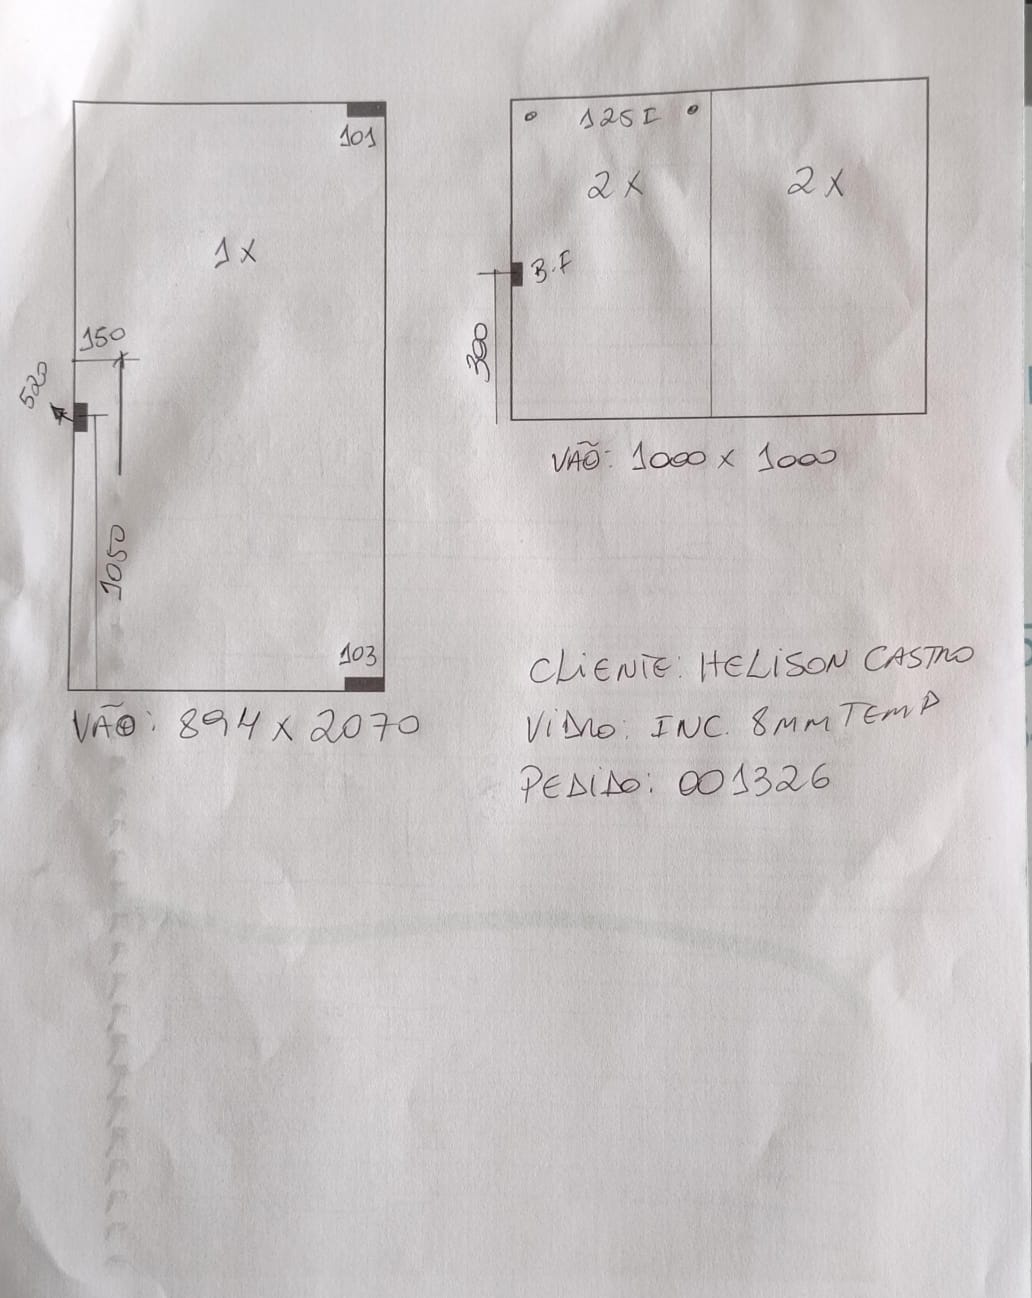 101
1x
150
520
1050
103
VÃO: 894 x 2070
125I
2x
2x
B.F
300
VÃO: 1000 x 1000
CLIENTE: HELISON CASTRO
VIDRO: INC. 8MM TEMP
PEDIDO: 001326